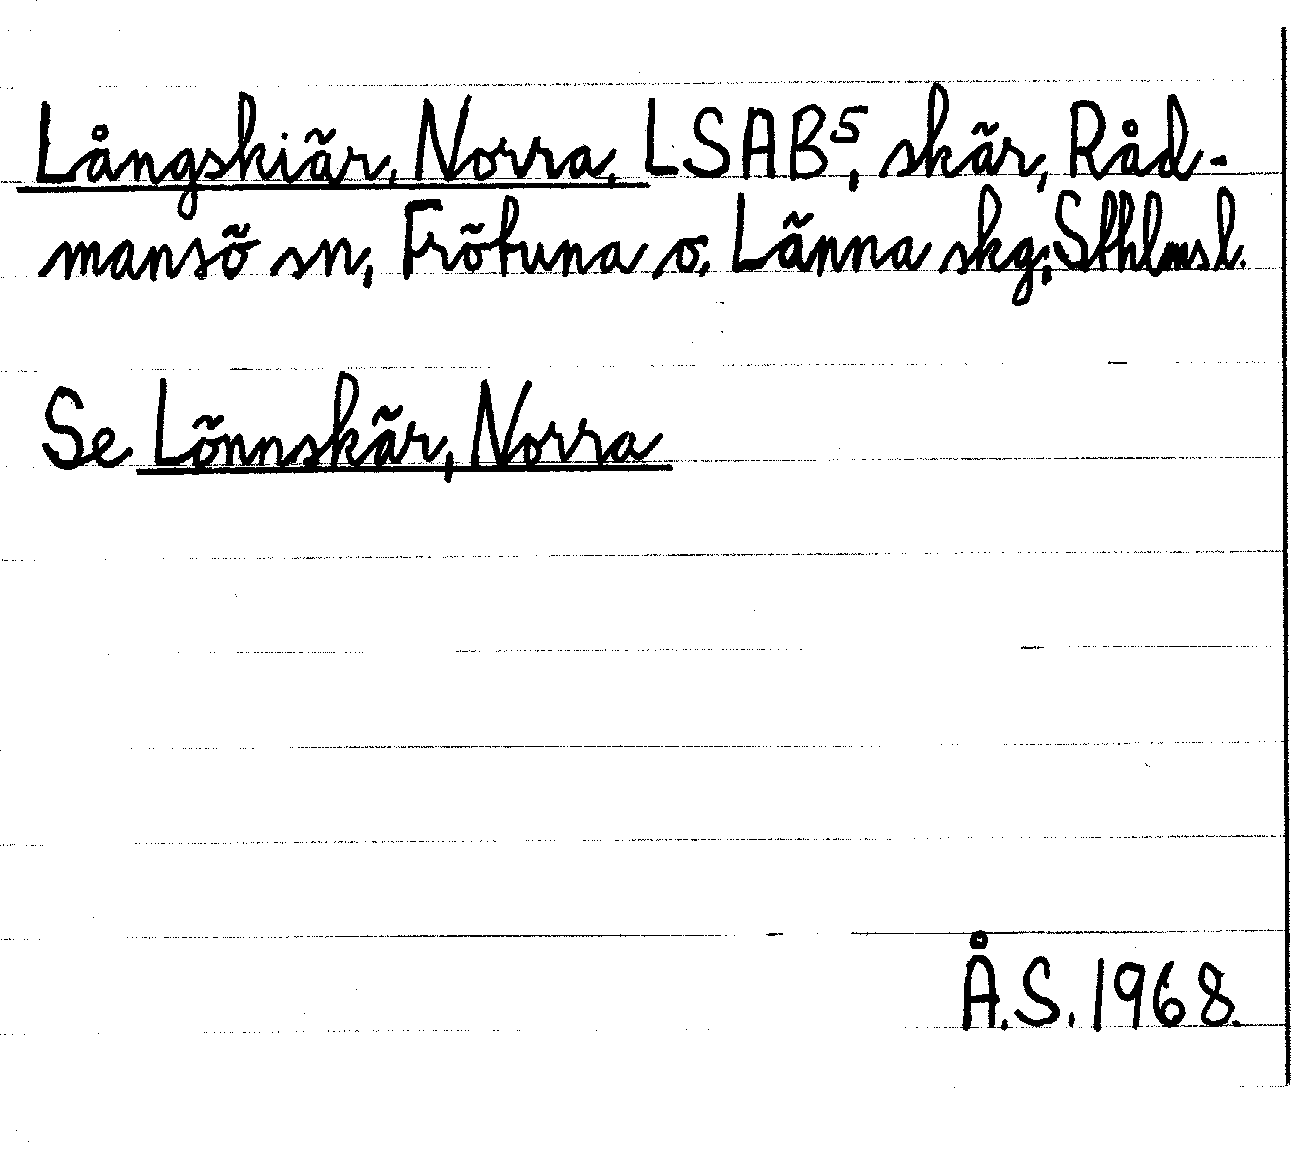 Långskiär, Norra, LSAB⁵, skär, Råd-
mansö sn, Frötuna o. Länna skg; Sthlms l.
Se Lönnskär, Norra
Å.S. 1968.